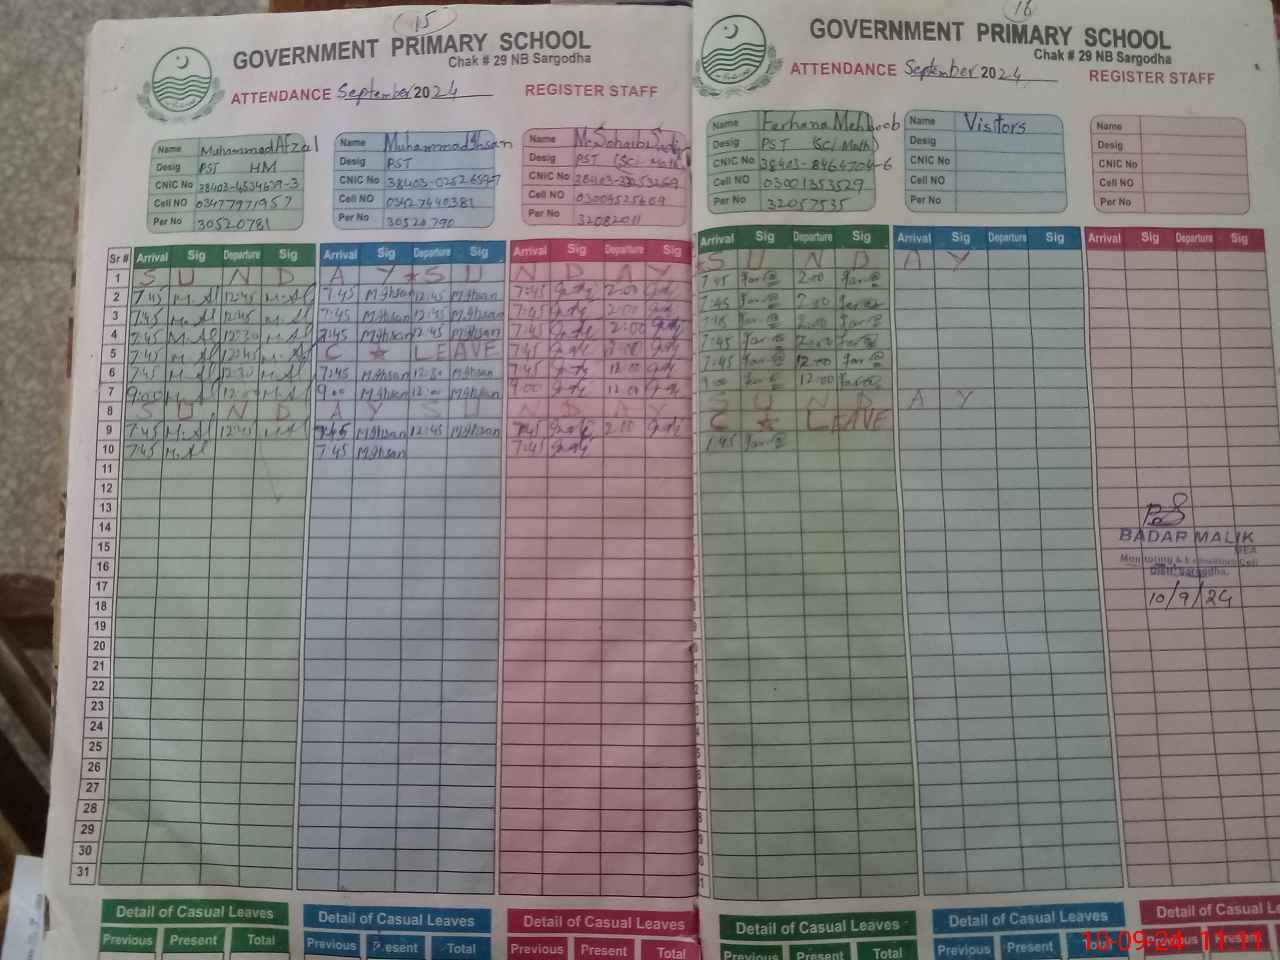 15
GOVERNMENT PRIMARY SCHOOL
Chak # 29 NB Sargodha
ATTENDANCE September 2024 REGISTER STAFF
Name Muhammad Afzal
Desig PST HM
CNIC No
Cell NO 03477971957
Per No 30520781
Name Muhammad Ihsan
Desig PST
CNIC No
Cell NO 03427440381
Per No 30520790
Name
Desig PST (Sci Math)
CNIC No
Cell NO 03004525609
Per No 32082011
Sr # Arrival Sig Departure Sig Arrival Sig Departure Sig Arrival Sig Departure Sig
1 S U N D A Y ★ S U N D A Y
2 7:45 M.Af 12:45 M.Af 7:45 M.Ihsan 12:45 M.Ihsan 7:45 2:00
3 7:45 M.Af 12:45 M.Af 7:45 M.Ihsan 12:45 M.Ihsan 7:45 2:00
4 7:45 M.Af 12:30 M.Af 7:45 M.Ihsan 12:45 M.Ihsan 7:45 2:00
5 7:45 M.Af 12:45 M.Af C ★ LEAVE 7:45 2:00
6 7:45 M.Af 12:30 M.Af 7:45 M.Ihsan 12:30 M.Ihsan 7:45 12:00
7 9:00 M.Af 12:00 M.Af 9:00 M.Ihsan 12:00 M.Ihsan 9:00 12:00
8 S U N D A Y S U N D A Y
9 7:45 M.Af 12:45 M.Af 7:45 M.Ihsan 12:45 M.Ihsan 7:45 2:00
10 7:45 M.Af 7:45 M.Ihsan 7:45
11
12
13
14
15
16
17
18
19
20
21
22
23
24
25
26
27
28
29
30
31
Detail of Casual Leaves Detail of Casual Leaves Detail of Casual Leaves
Previous Present Total Previous Present Total Previous Present Total
16
GOVERNMENT PRIMARY SCHOOL
Chak # 29 NB Sargodha
ATTENDANCE September 2024 REGISTER STAFF
Name Farhana Mehboob
Desig PST (Sci Math)
CNIC No 38403-8464704-6
Cell NO 03001353529
Per No 32057535
Name Visitors
Desig
CNIC No
Cell NO
Per No
Name
Desig
CNIC No
Cell NO
Per No
Arrival Sig Departure Sig Arrival Sig Departure Sig Arrival Sig Departure Sig
S U N D A Y
7:45 2:00
7:45 2:00
7:45 2:00
7:45 2:00
7:45 12:00
9:00 12:00
S U N D A Y
C ★ LEAVE
7:45
BADAR MALIK
MEA
Monitoring & Evaluation Cell
Distt. Sargodha.
10/9/24
Detail of Casual Leaves Detail of Casual Leaves Detail of Casual Le
Previous Present Total Previous Present Total Previous Present
10-09-24 11:11